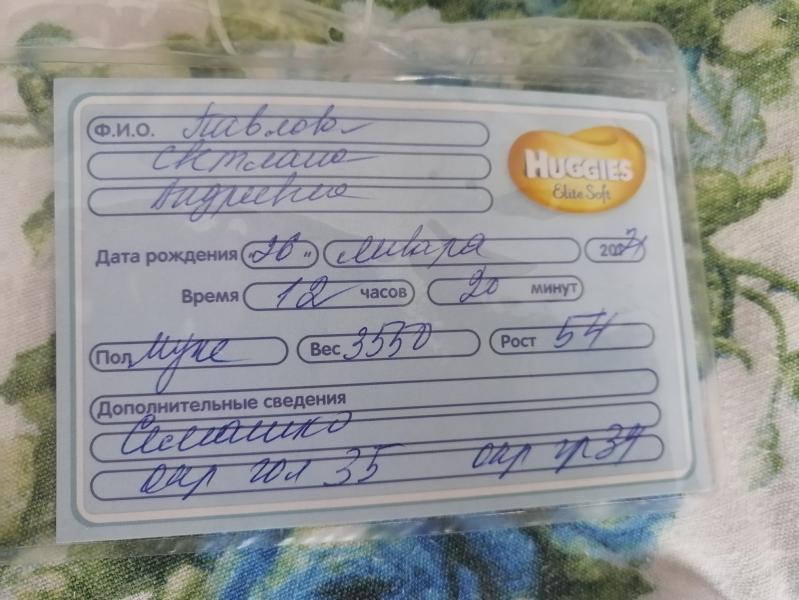 Ф.И.О. Павлова
Светлана
Андреевна
HUGGIES
Elite Soft
Дата рождения „26“ января 2021
Время 12 часов 20 минут
Пол Муж Вес 3550 Рост 54
Дополнительные сведения
Семашко
окр гол 35 окр гр 34